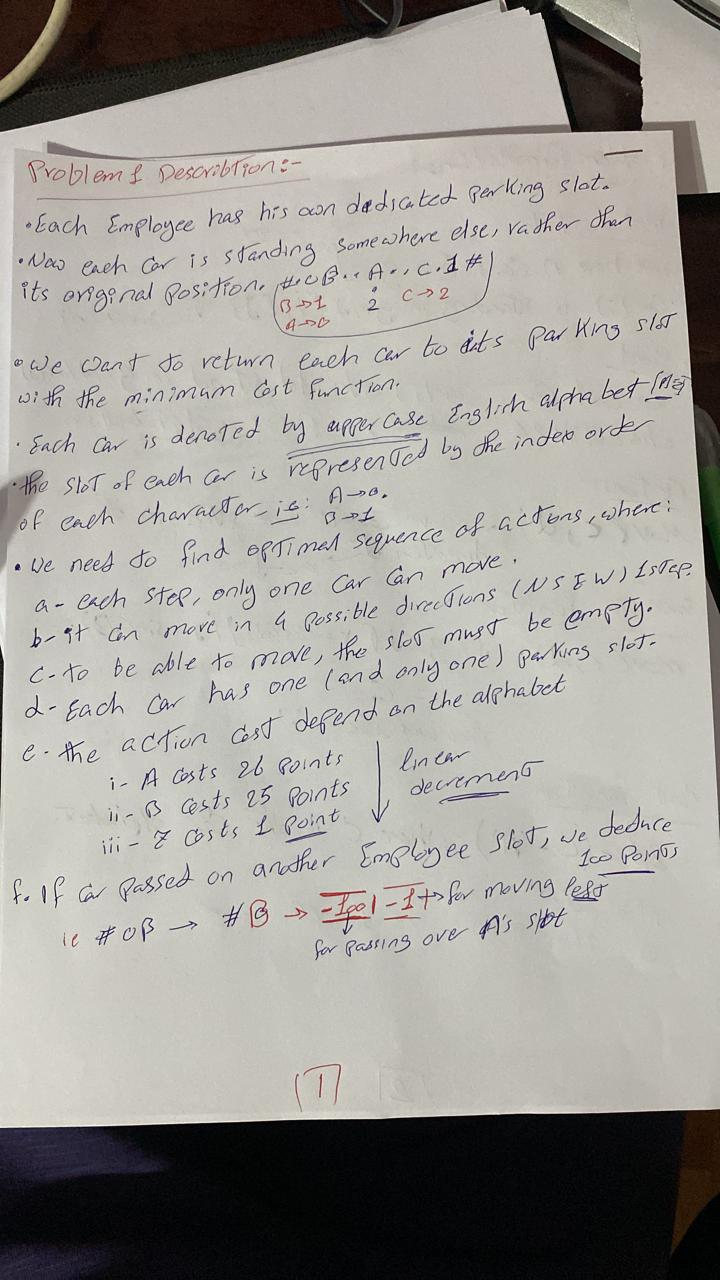 Problem 1 Describtion:-
• Each Employee has his own dedicated parking slot.
• Now each car is standing somewhere else, rather than
its original position. #.0B..A.,C.1#
B→1 2 C→2
A→0
• We want to return each car to its parking slot
with the minimum cost function.
• Each car is denoted by uppercase English alphabet
• the slot of each car is represented by the index order
of each character ie: A→0.
B→1
• We need to find optimal sequence of actions, where:
a- each step, only one car can move.
b- it can move in 4 possible directions (N S E W) 1 step.
c- to be able to move, the slot must be empty.
d- Each car has one (and only one) parking slot.
e- the action cost depend on the alphabet
i- A costs 26 points
ii- B costs 25 points
iii- Z costs 1 point
linear
decrement
f. If car passed on another Employee slot, we deduce
100 points
ie #0B → #B → -100 -1 → for moving left
for passing over A's slot
1